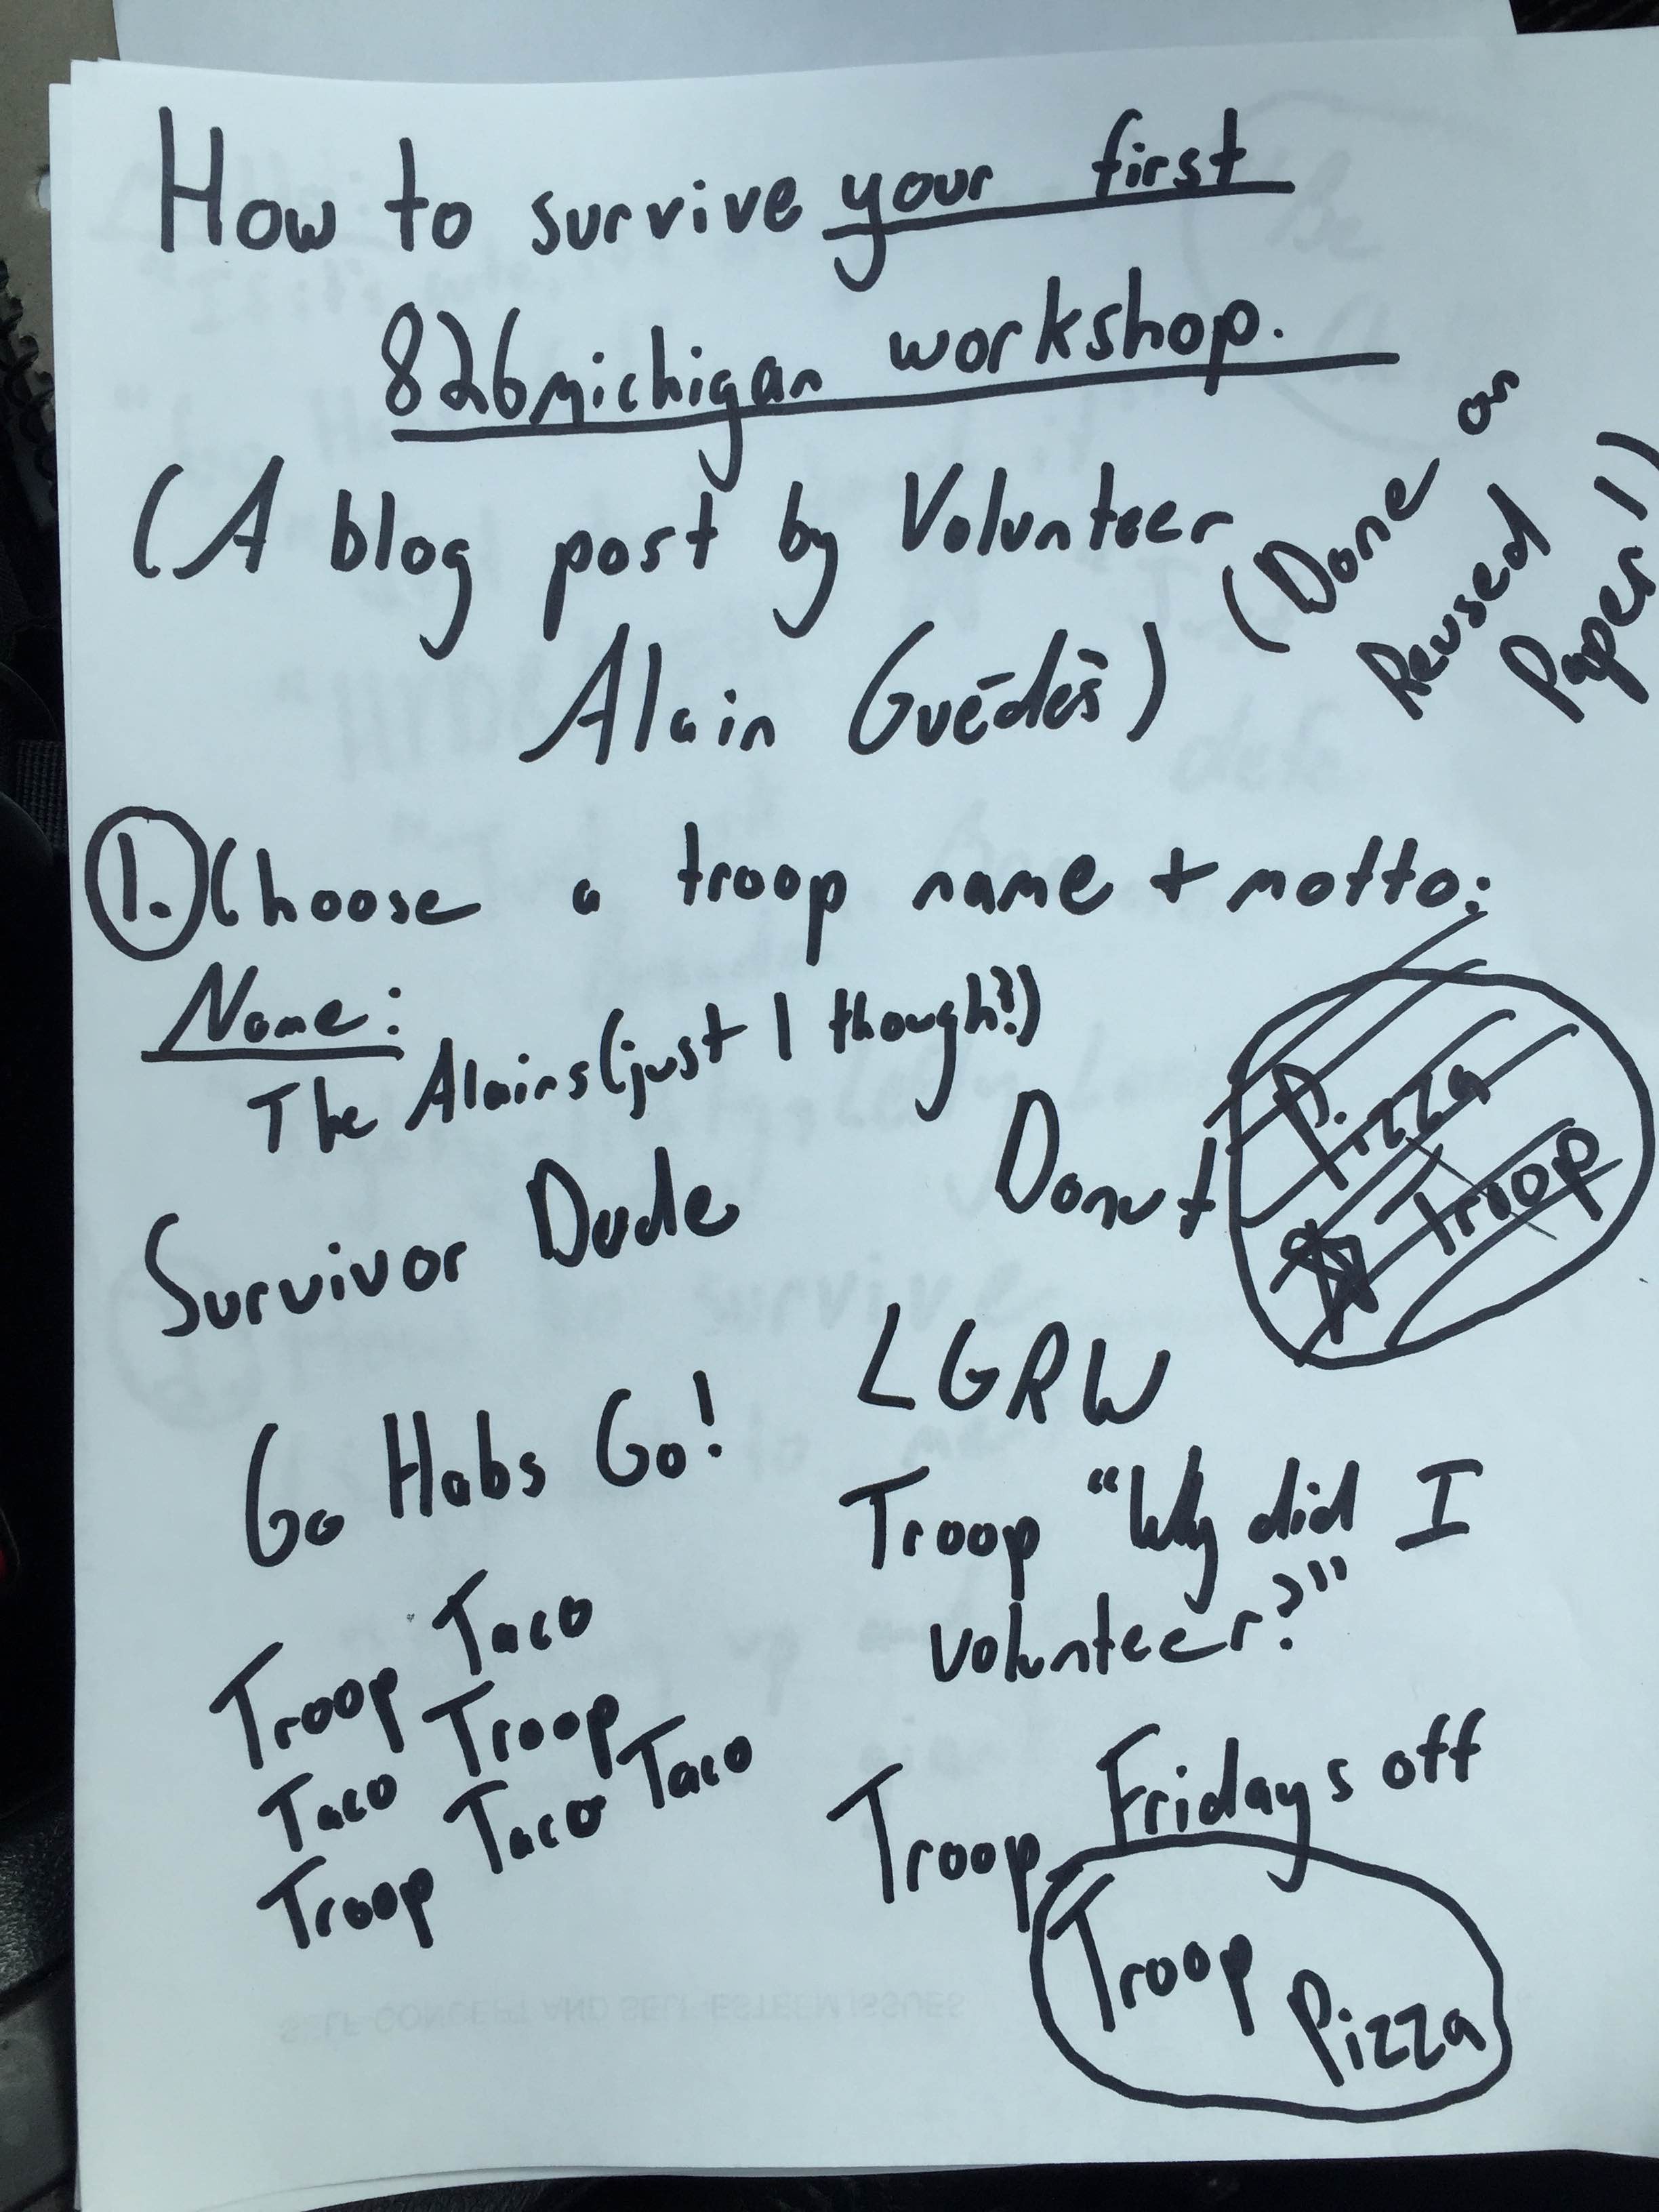 How to survive your first
826michigan workshop.
(A blog post by Volunteer
Alain Guēdès)
(Done on
Reused
Paper!)
1. Choose a troop name + motto:
Name:
The Alains (just 1 though?)
Survivor Dude
Donut
Pizza
Troop
Go Habs Go!
LGRW
Troop "Why did I
volunteer?"
Troop Taco
Taco Troop
Troop Taco Taco
Troop Fridays off
Troop
Pizza
SELF CONCEPT AND SELF-ESTEEM ISSUES